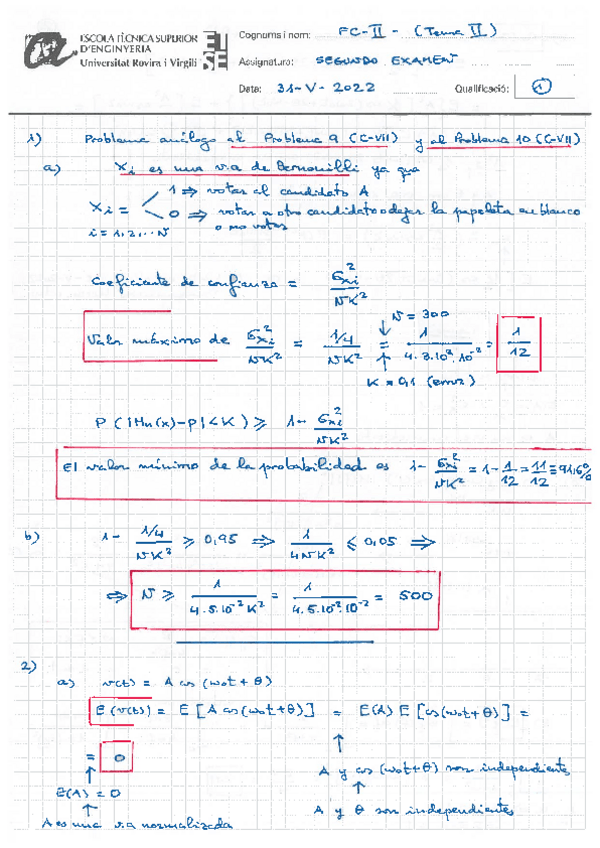 ESCOLA TÈCNICA SUPERIOR
D'ENGINYERIA
Universitat Rovira i Virgili
ETSE
Cognoms i nom: FC-II - (Tema II)
Assignatura: SEGUNDO EXAMEN
Data: 31-V-2022
Qualificació: 1
1) Problema análogo al Problema 9 (C-VII) y al Problema 10 (C-VII)
a) Xi es una v.a de Bernouilli ya que
Xi = 1 ⇒ votar al candidato A
0 ⇒ votar a otro candidato o dejar la papeleta en blanco
i = 1,2,...N o no votar
Coeficiente de confianza = σxi² / NK²
N = 300
Valor máximo de σxi² / NK² = 1/4 / NK² = 1 / 4·3·10²·10⁻² = 1/12
K = 0,1 (error)
P(|Mn(x)-p|<K) ≥ 1 - σxi² / NK²
El valor mínimo de la probabilidad es 1 - σxi² / NK² = 1 - 1/12 = 11/12 = 91,6%
b) 1 - 1/4 / NK² ≥ 0,95 ⇒ 1 / 4NK² ≤ 0,05 ⇒
⇒ N ≥ 1 / 4·5·10⁻² K² = 1 / 4·5·10⁻²·10⁻² = 500
2)
a) v(t) = A cos(ωot + θ)
E(v(t)) = E[A cos(ωot+θ)] = E(A) E[cos(ωot+θ)] =
= 0
A y cos(ωot+θ) son independientes
E(A) = 0
A y θ son independientes
A es una v.a normalizada